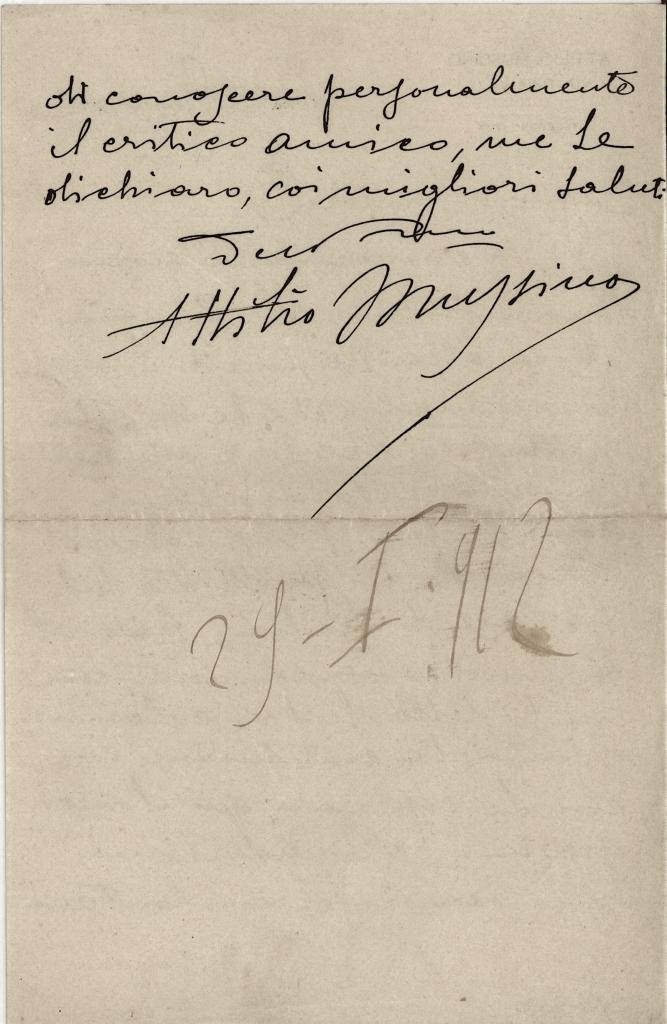 di conoscere personalmente
il critico amico, me Le
dichiaro, coi migliori saluti
Attilio Mussino
29-I.912